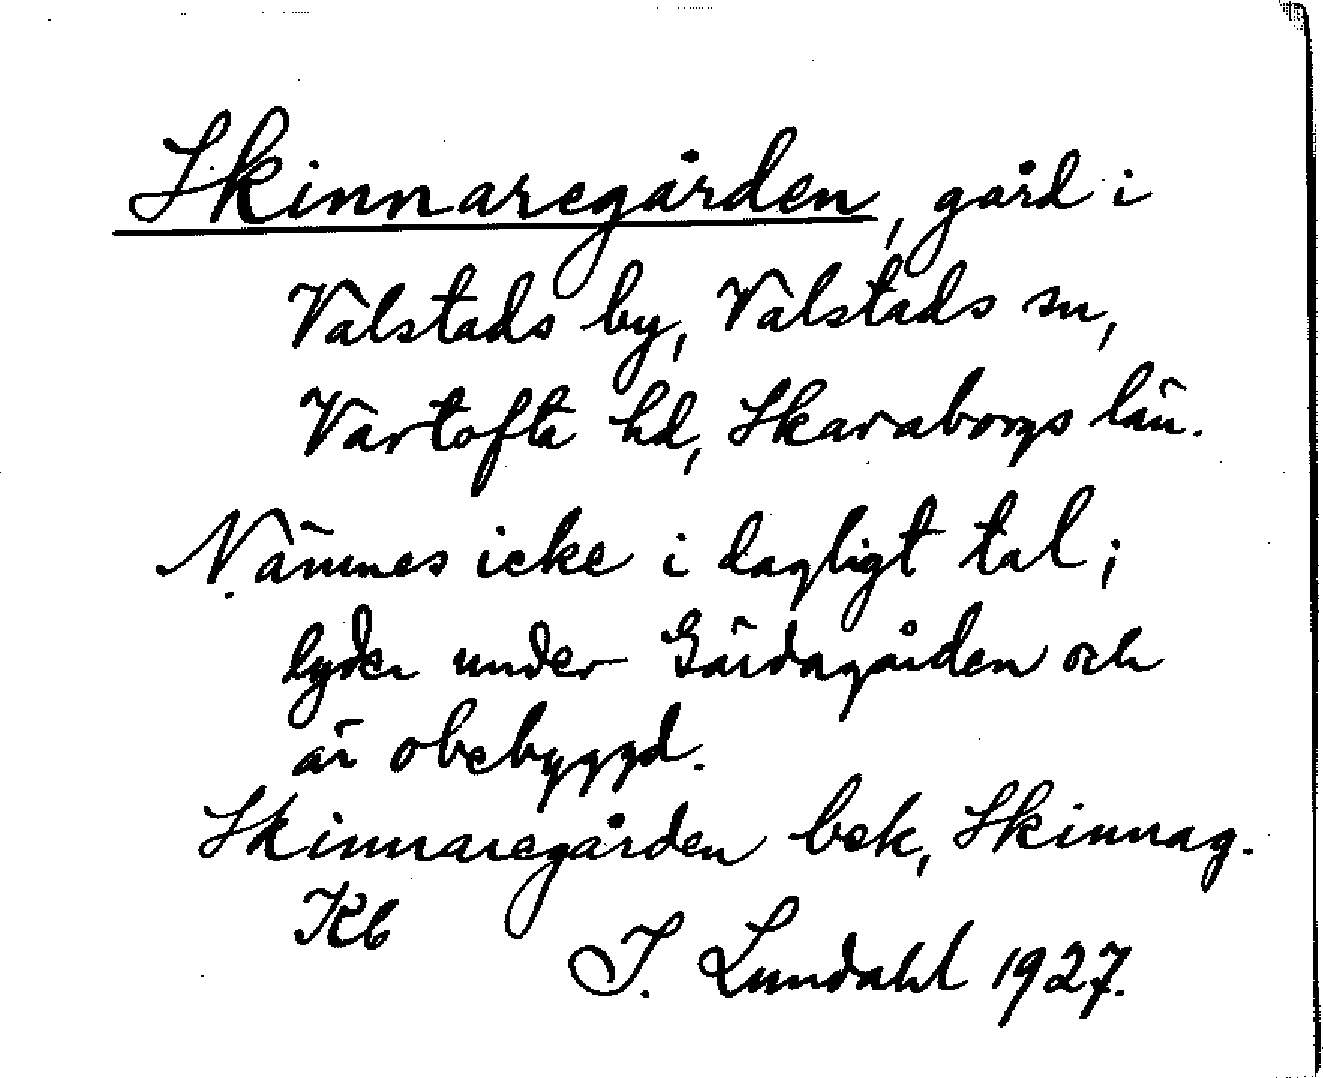 Skinnaregården, gård i
Valstads by, Valstads sn,
Vartofta hd, Skaraborgs län.
Nämnes icke i dagligt tal;
lyder under Gärdagården och
är obebyggd.
Skinnaregården bek, Skinnag.
Kb
I. Lundahl 1927.